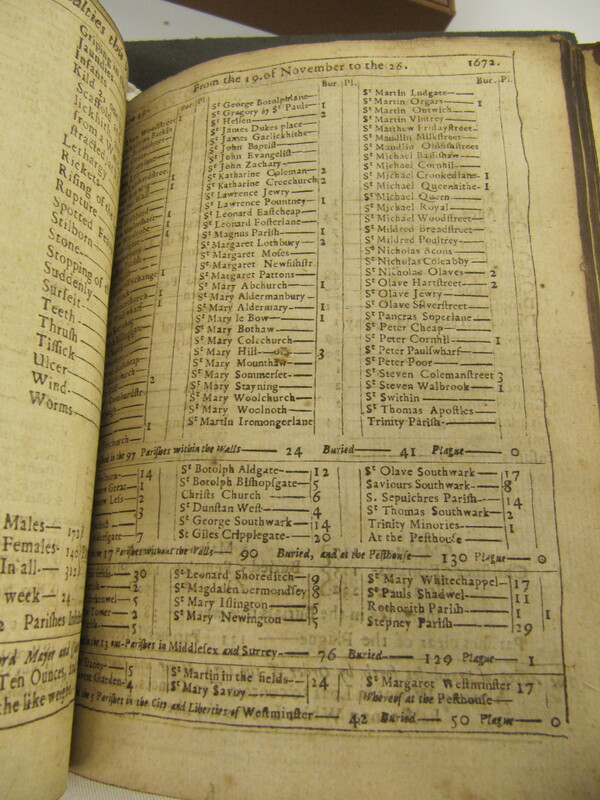 alties this
Griping in
Jaundies
Infants
Kild 2.
Scaffold at
sicklish
from a
stracted
Lethargy
Rickets
Rising of the
Rupture
Spotted Fe
Stilborn
Stone
Stopping of
Suddenly
Surfeit
Teeth
Thrush
Tissick
Ulcer
Wind
Worms
Males— 172
Females- 140
In all— 312
week— 24
Parishes
ord Mayor and
Ten Ounces,
the like weight
From the 19. of November to the 26. 1672.
Bur. Pl. Bur. Pl. Bur. Pl.
St George Botolphlane
St Gregory by St Pauls 1
St Hellen 2
St James Dukes place
St James Garlickhithe
St John Baptist
St John Evangelist
St John Zachary
St Katharine Coleman 2
St Katharine Creechurch 2
St Lawrence Jewry
St Lawrence Pountney 1
St Leonard Eastcheap
St Leonard Fosterlane
St Magnus Parish 1
St Margaret Lothbury 2
St Margaret Moses
St Margaret Newfishstr
St Margaret Pattons
St Mary Abchurch 1
St Mary Aldermanbury
St Mary Aldermary 1
St Mary le Bow 1
St Mary Bothaw
St Mary Colechurch
St Mary Hill 3
St Mary Mounthaw
St Mary Sommerset
St Mary Stayning
St Mary Woolchurch
St Mary Woolnoth
St Martin Iromongerlane
St Martin Ludgate
St Martin Orgars 1
St Martin Outwich
St Martin Vintrey
St Matthew Fridaystreet
St Maudlin Milkstreet
St Maudlin Oldfishstreet
St Michael Bassishaw
St Michael Cornhil
St Michael Crookedlane 1
St Michael Queenhithe 1
St Michael Quern
St Michael Royal
St Michael Woodstreet
St Mildred Breadstreet
St Mildred Poultrey
St Nicholas Acons
St Nicholas Coleabby
St Nicholas Olaves 2
St Olave Hartstreet 2
St Olave Jewry
St Olave Silverstreet
St Pancras Soperlane
St Peter Cheap
St Peter Cornhil 1
St Peter Paulswharf
St Peter Poor
St Steven Colemanstreet 3
St Steven Walbrook 1
St Swithin
St Thomas Apostles
Trinity Parish
in the 97 Parishes within the Walls— 24 Buried— 41 Plague— 0
St Botolph Aldgate— 12
St Botolph Bishopsgate— 5
Christs Church— 6
St Dunstan West— 4
St George Southwark— 14
St Giles Cripplegate— 20
St Olave Southwark— 17
Saviours Southwark— 8
S. Sepulchres Parish— 14
St Thomas Southwark— 2
Trinity Minories— 1
At the Pesthouse—
17 Parishes without the Walls— 90 Buried, and at the Pesthouse— 130 Plague— 0
St Leonard Shoreditch— 9
St Magdalen Bermondsey 8
St Mary Islington— 5
St Mary Newington— 5
St Mary Whitechappel— 17
St Pauls Shadwel— 11
Rothorith Parish— 1 1
Stepney Parish— 29
13 out-Parishes in Middlesex and Surrey— 76 Buried— 129 Plague— 1
St Martin in the fields— 24
St Mary Savoy—
St Margaret Westminster 17
Whereof at the Pesthouse—
the 5 Parishes in the City and Liberties of Westminster— 42 Buried— 50 Plague— 0